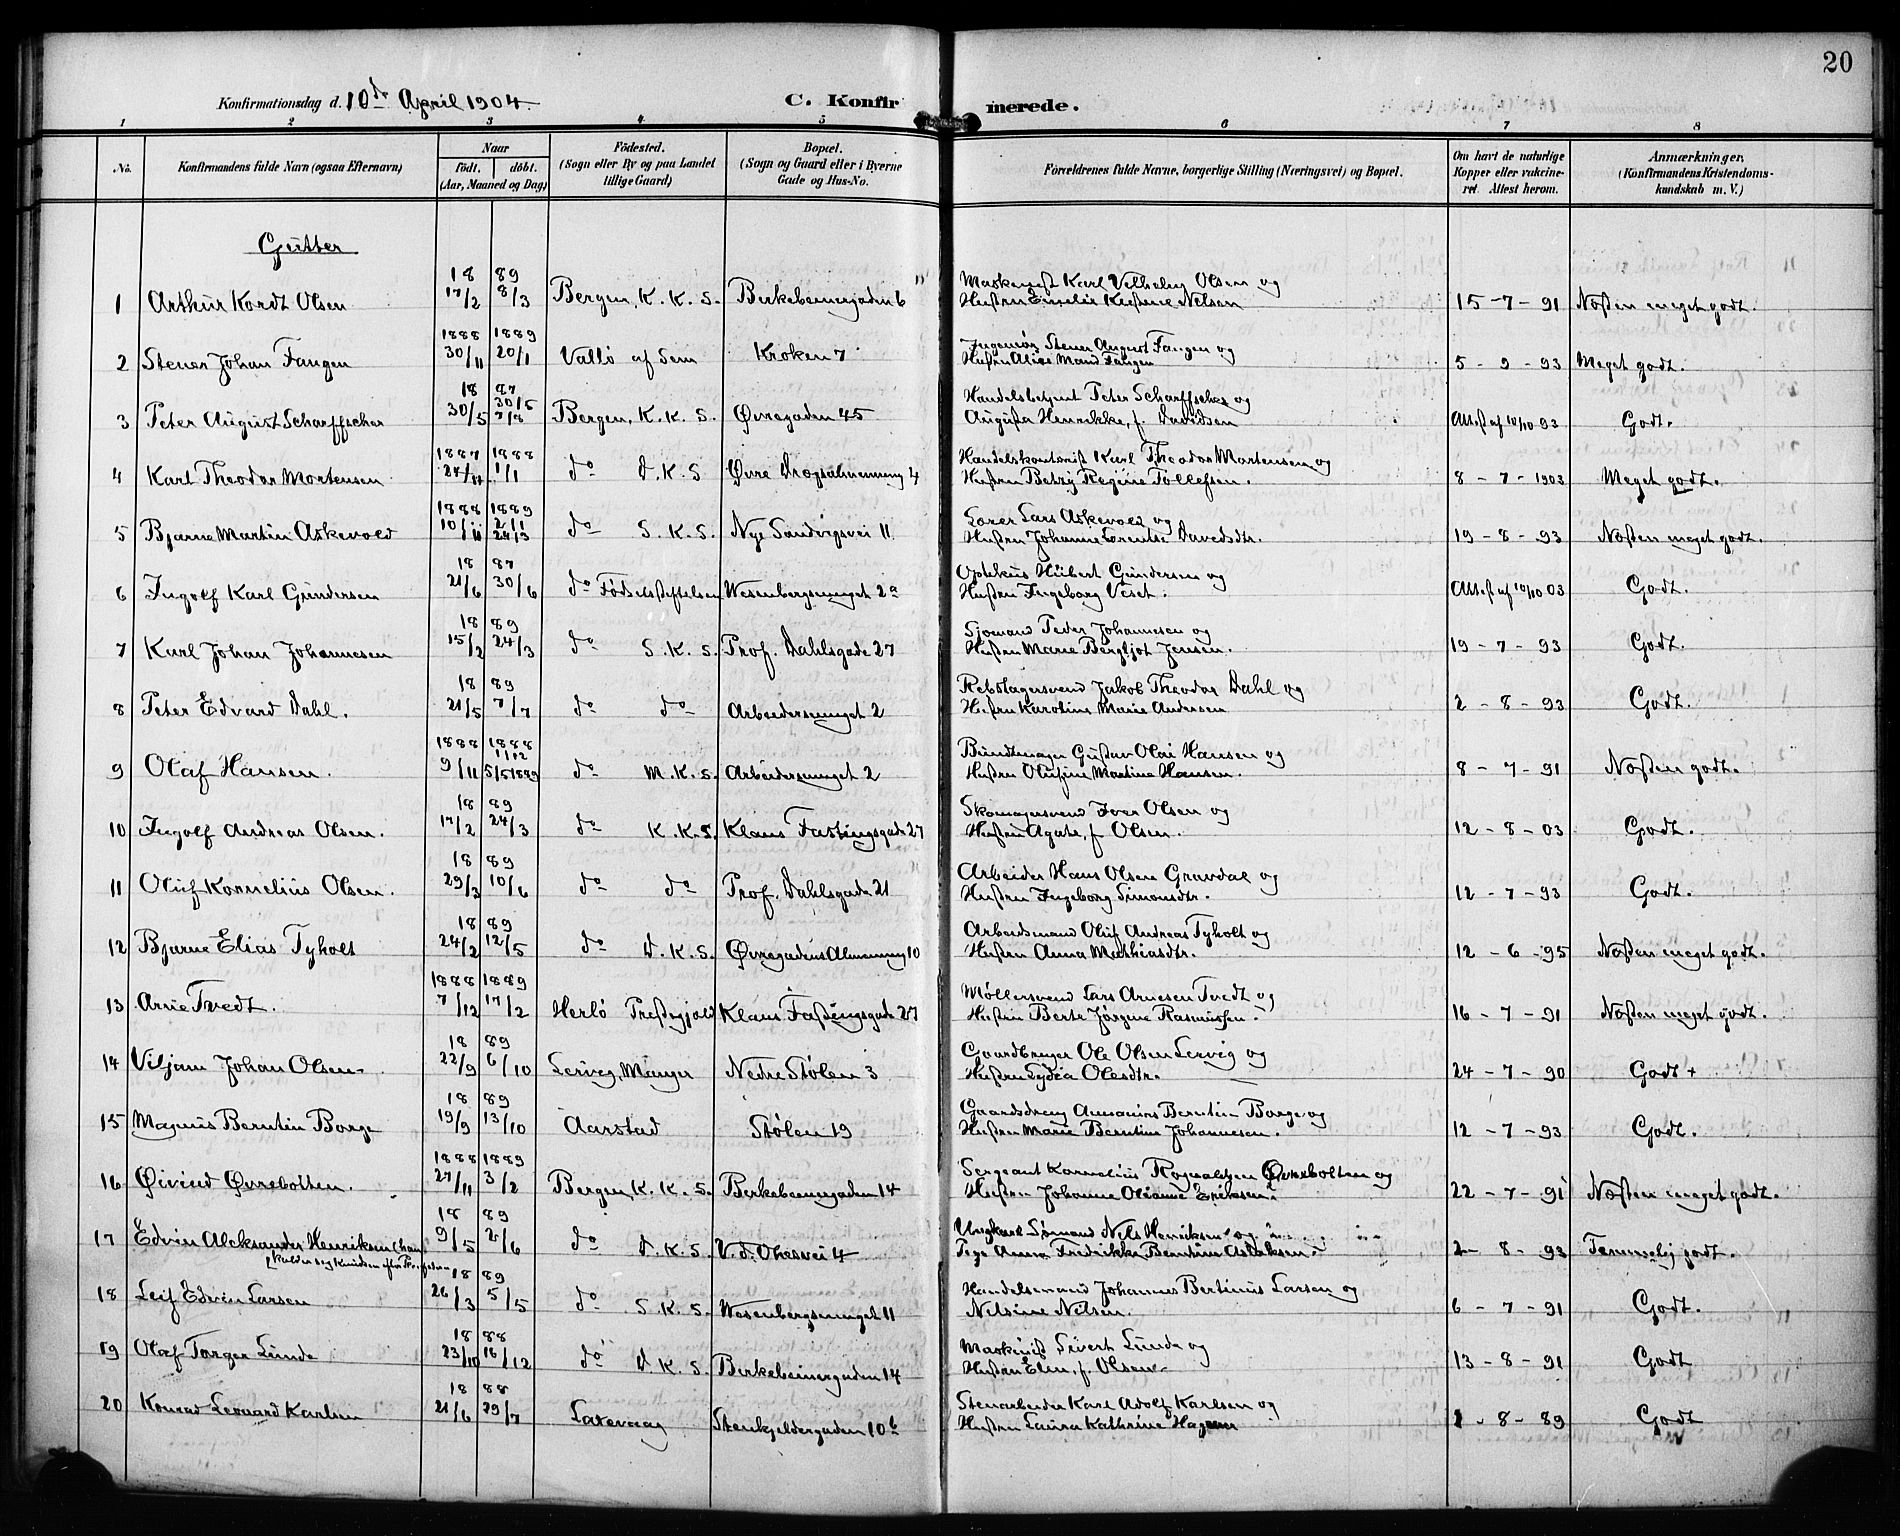 20
Konfirmationsdag d. 10de April 1904. C. Konfirmerede.
1 2 3 4 5 6 7 8
No. Konfirmandens fulde Navn (ogsaa Efternavn) Naar født. døbt. (Aar, Maaned og Dag) Fødested. (Sogn eller By og paa Landet tillige Gaard) Bopæl. (Sogn og Gaard eller i Byerne Gade og Hus-No. Forældrenes fulde Navne, borgerlige Stilling (Næringsvei) og Bopæl. Om havt de naturlige Kopper eller vakcineret. Attest herom. Anmærkninger. (Konfirmandens Kristendomskundskab m. V.)
Gutter
18 89 Maskinist Karl Vilhelm Olsen og
1 Arthur Kordt Olsen 17/2 8/3 Bergen, K. K. S. Birkebeinergaden 6 Hustru Emelie Kristine Nilsen 15-7-91 Næsten meget godt.
1888 1889 Ingeniør Stener August Fangen og
2 Stener Johan Fangen 30/11 20/1 Vallø af Sem Kroken 7 Hustru Alice Maud Fangen 5-9-93 Meget godt.
18 87 30/5 Handelsbetjent Peter Scharffscher og
3 Peter August Scharffscher 30/5 7/8 Bergen, K. K. S. Øvregaden 45 Augusta Henrikke, f. Davidsen Attest af 10/10 93 Godt.
1887 1888 Handelskontorist Karl Theodor Mortensen og
4 Karl Theodor Mortensen 27/11 1/1 do D. K. S Øvre Dregsalmenning 4 Hustru Betzy Regine Tollefsen. 8-7-1903 Meget godt.
1888 1889 2/1 Lars Askevold og
5 Bjarne Martin Askevold 10/11 24/3 do S. K. S. Nye Sandvigsvei 11 Hustru Johanne Lorentse Davidsdtr. 19-8-93 Næsten meget godt.
18 87 Hubert Gundersen og
6 Ingolf Karl Gundersen 21/6 30/6 do Fødselsstiftelsen Wesenbergsmuget 2a Hustru Ingeborg Veset. Attest af 10/10 03 Godt.
18 89 Sjømand Peder Johannesen og
7 Karl Johan Johannesen 15/2 24/3 do S. K. S. Prof. Dahlsgade 27 Hustru Marie Bergljot Jensen. 19-7-93 Godt.
18 89 Rebslagersvend Jakob Theodor Dahl og
8 Peter Edvard Dahl. 21/5 7/7 do do Arbeidersmuget 2 Hustru Karoline Marie Andersen 2-8-93 Godt.
1888 1888 1/12 Bundtmager Gustav Olai Hansen og
9 Olaf Hansen. 9/11 5/5 1889 do M. K. S. Arbeidersmuget 2 Hustru Olufine Martine Hansen. 8-7-91 Næsten godt.
18 89 Skomagersvend Iver Olsen og
10 Ingolf Andreas Olsen. 17/2 24/3 do K. K. S. Klaus Fastingsgade 27 Hustru Agate, f. Olsen. 12-8-03 Godt.
18 89 Arbeider Hans Olsen Gravdal og
11 Oluf Kornelius Olsen. 29/3 10/6 do do Prof. Dahlsgade 21 Hustru Ingeborg Simonsdtr. 12-7-93 Godt.
18 89 Arbeidsmand Oluf Andreas Tyholt og
12 Bjarne Elias Tyholt 24/2 12/5 do D. K. S. Øvregadens Almenning 10 Hustru Anna Mathiasdtr. 12-6-95 Næsten meget godt.
1888 1889 Møllersvend Lars Arnesen Tvedt og
13 Arne Tvedt. 7/12 17/2 Herlø Præstegjeld Klaus Fastingsgade 27 Hustru Berte Jørgine Rasmussen. 16-7-91 Næsten meget godt.
18 89 Gaardbruger Ole Olsen Lervig og
14 Viljam Johan Olsen 22/9 6/10 Lervig, Manger Nedre Stølen 3 Hustru Lydia Olesdtr. 24-7-90 Godt +
18 89 Gaardsdreng Berntin Borge og
15 Magnus Berntin Borge 19/9 13/10 Aarstad Stølen 19 Hustru Marie Berntine Johannesen. 12-7-93 Godt.
1888 1889 Sergeant Kornelius Rognaldsen Øvrebotten og
16 Øivind Øvrebotten. 27/11 3/2 Bergen, K. K. S. Birkebeinergaden 14 Hustru Johanne Olianne Eriksen. 22-7-91 Næsten meget godt.
18 89 Ungkarl Sømand Nils Henriksen og
17 Edvin Aleksander Henriksen (han 9/5 2/6 do D. K. S. V. d. Ohesvei 4 Pige Anna Fredrikke Berntine Aslaksen 2-8-93 Temmelig godt.
kalder sig Knudsen efter
18 89 Handelsmand Johannes Bertinus Larsen og
18 Leif Edvin Larsen 26/3 5/5 do S. K. S. Wesenbergsmuget 11 Nilsine Nilsen. 6-7-91 Godt.
18 88 Maskinist Sivert Lunde og
19 Olaf Torger Lunde 23/10 16/12 do D. K. S. Birkebeinergaden 14 Hustru Elen, f. Olsen 13-8-91 Godt
18 88 Stenarbeider Karl Adolf Karlsen og
20 Konrad Leonard Karlsen 21/6 29/7 Laxevaag Stenkjeldergaden 10b Hustru Laura Kathrine Hagen 1-8-89 Godt